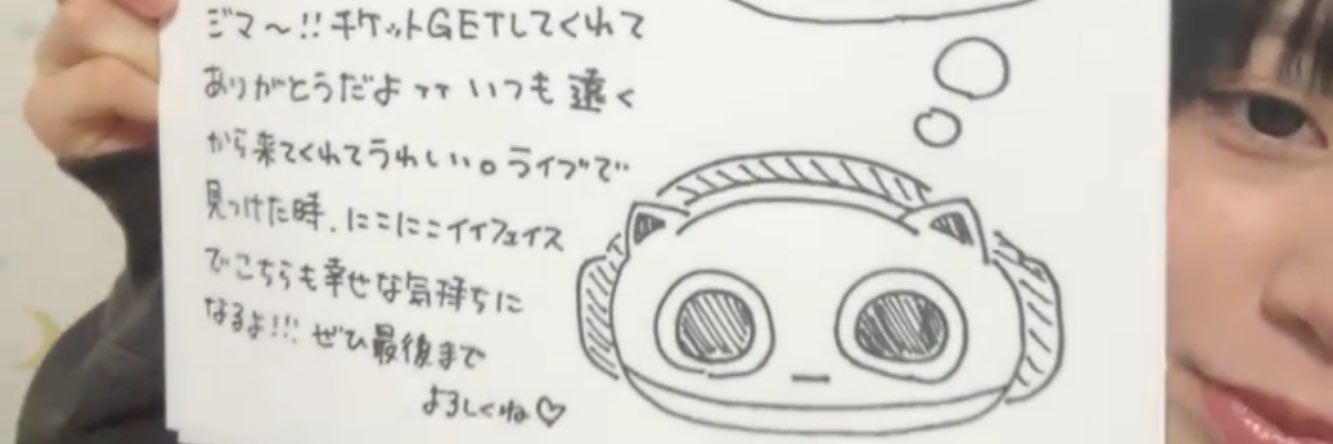 ジマ～!!チケットGETしてくれて
ありがとうだよTT いつも遠く
から来てくれてうれしい。ライブで
見つけた時、にこにこイイフェイス
でこちらも幸せな気持ちに
なるよ!!! ぜひ最後まで
よろしくね♡